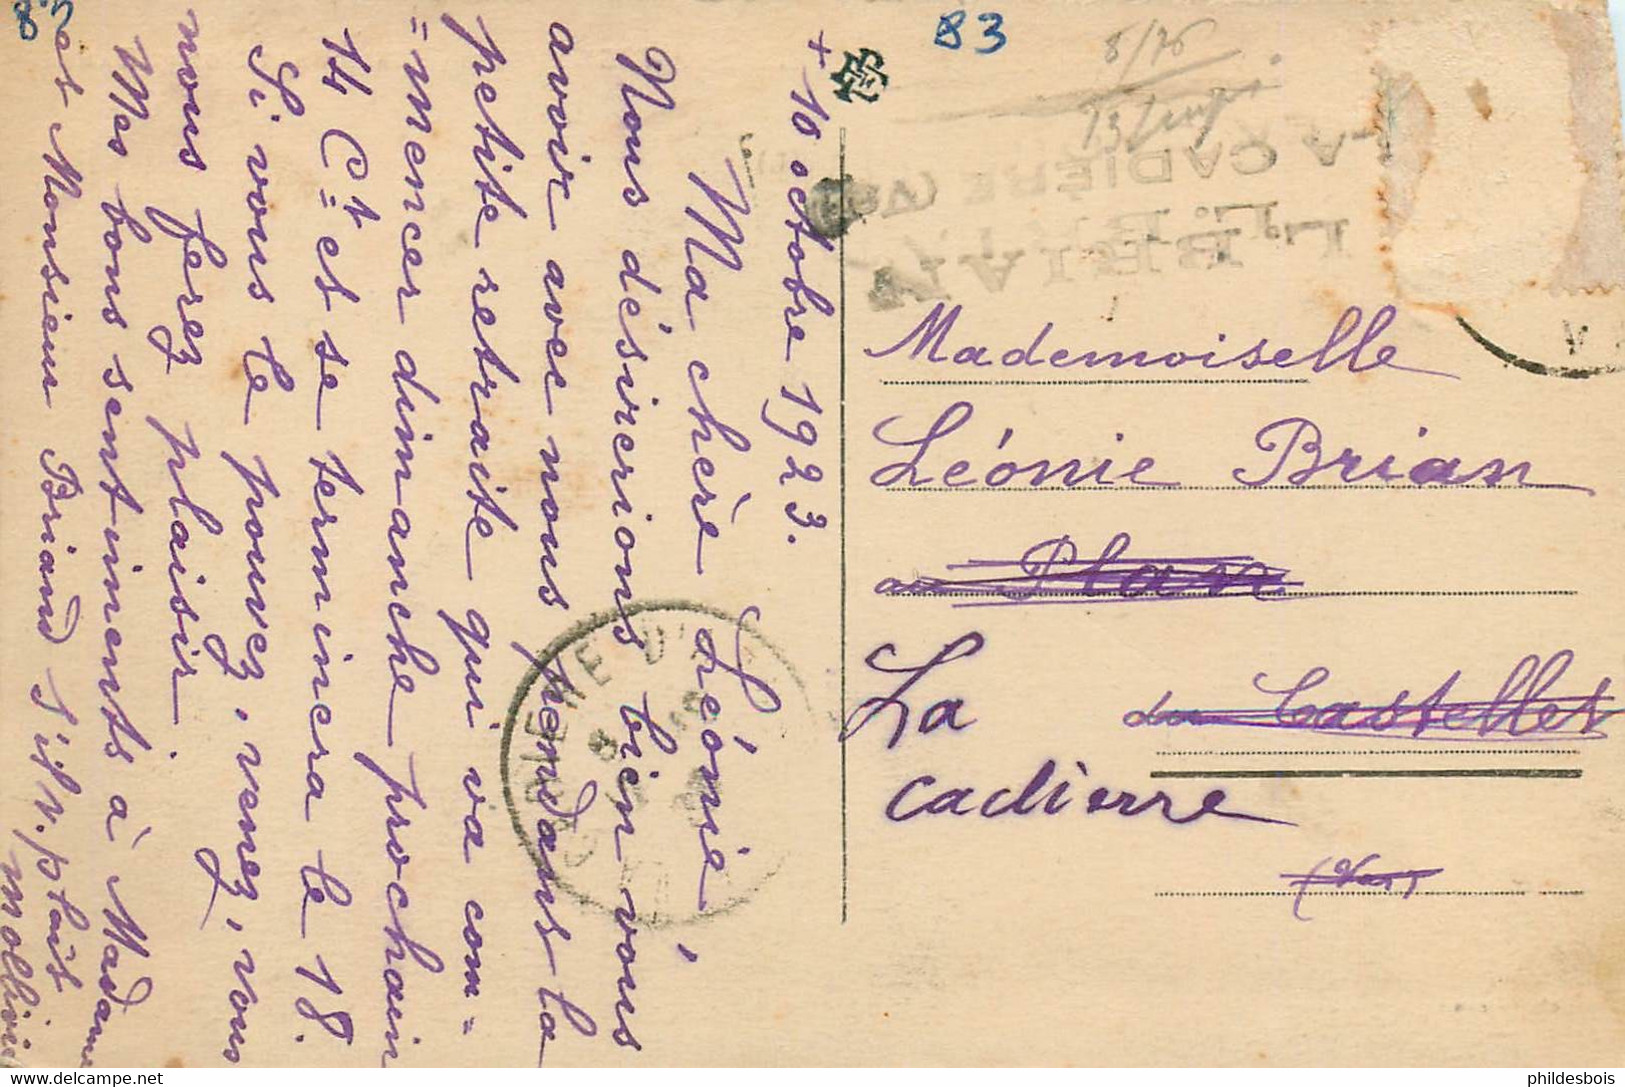 83
83
8/76
LA CADIÈRE (VAR)
+ 10 octobre 1923.
Ma chère Léonie,
Nous désirerions bien vous
avoir avec nous pendans la
petite retraite qui va com=
=mencer dimanche prochain
14 Ct et se terminera le 18.
Si vous le pouvez, venez, vous
nous ferez plaisir.
Mes bons sentiments à Madame
et Monsieur Briand s'il v. plait
Mademoiselle
Léonie Brian
au Plan
du Castellet
La
cadierre
(Var)
phildesbois